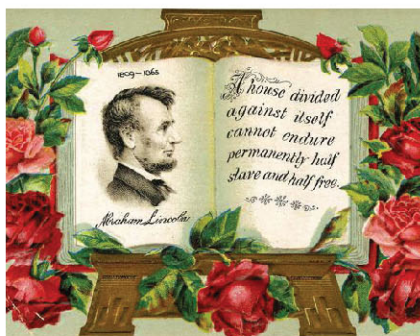 1809–1865
Abraham Lincoln
A house divided
against itself
cannot endure
permanently half
slave and half free.